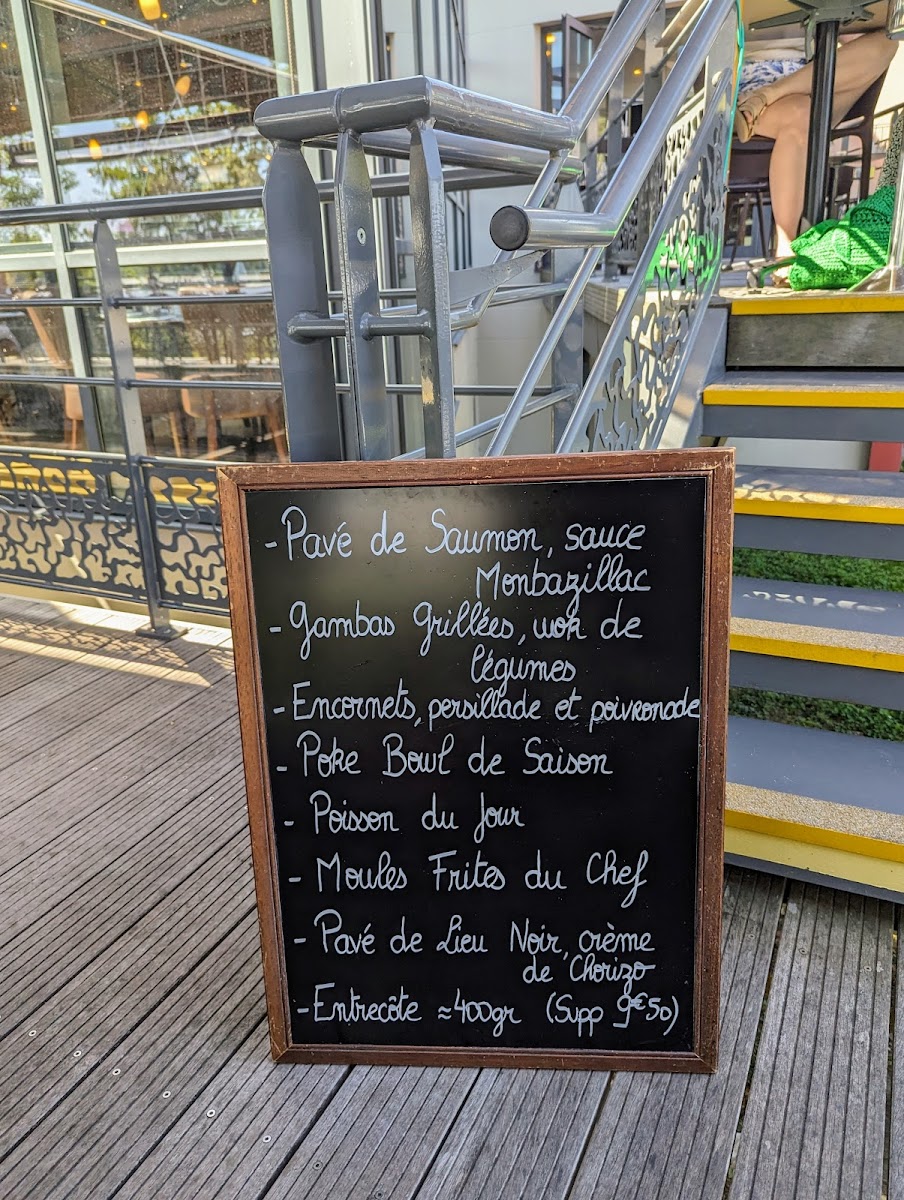 - Pavé de Saumon, sauce
Monbazillac
- Gambas Grillées, wok de
légumes
- Encornets, persillade et poivronade
- Poke Bowl de Saison
- Poisson du Jour
- Moules Frites du Chef
- Pavé de Lieu Noir, crème
de Chorizo
- Entrecôte ≈400gr (Supp 9€50)